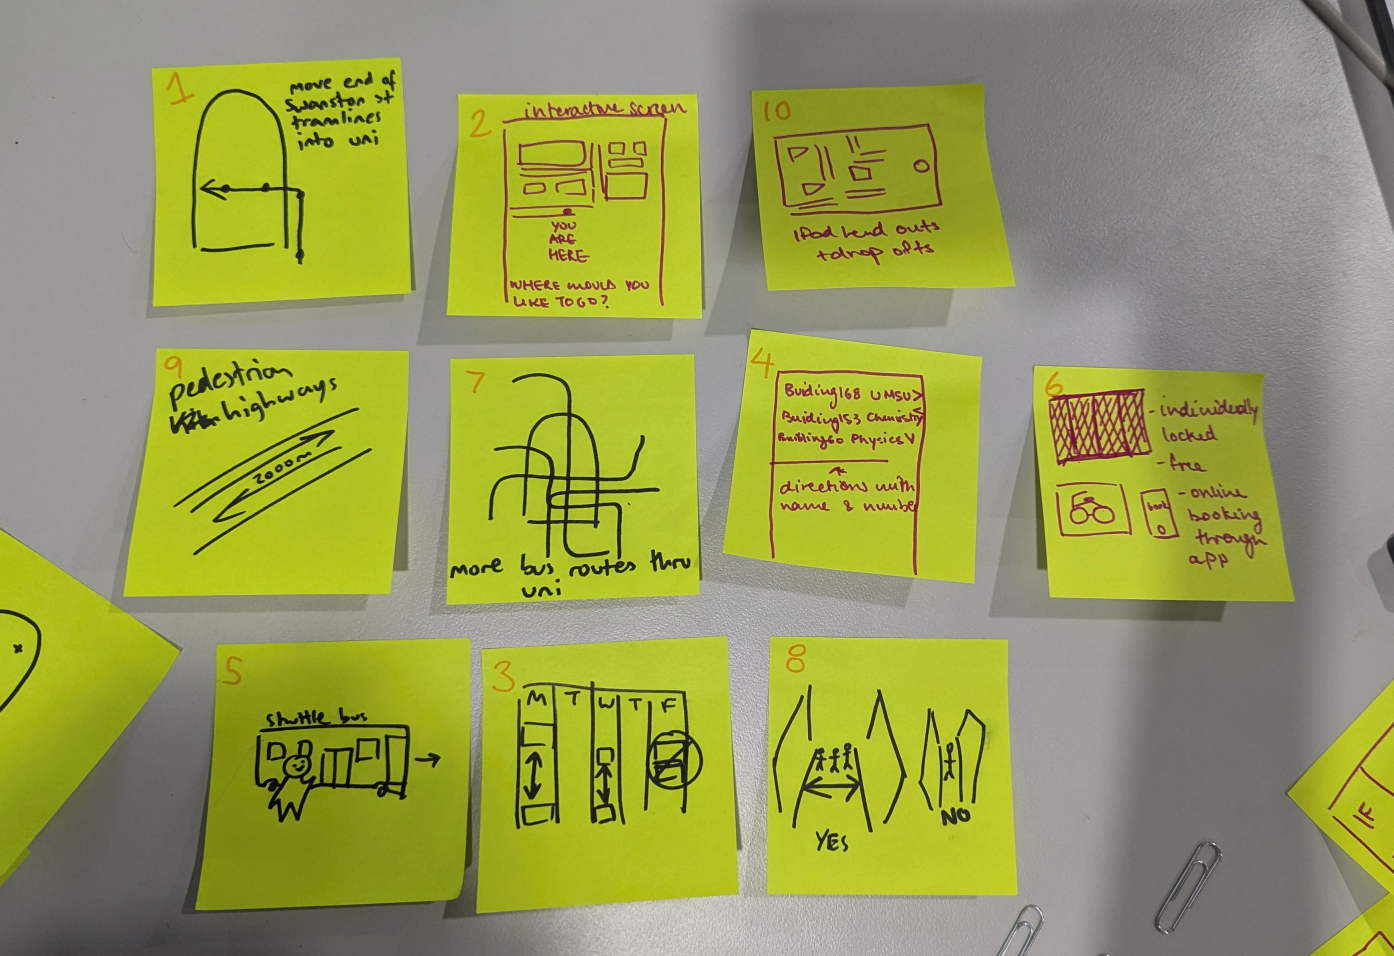 1
move end of
Swanston st
tramlines
into uni
2
interactive screen
YOU
ARE
HERE
WHERE WOULD YOU
LIKE TO GO?
10
iPad lend outs
+drop offs
9
pedestrian
highways
2000m
7
more bus routes thru
uni
4
Building168 UMSU >
Building153 Chemistry <
Building60 Physics V
directions with
name & number
6
- individually
locked
- free
- online
booking
through
app
book
5
shuttle bus
3
M T W T F
8
YES
NO
IF